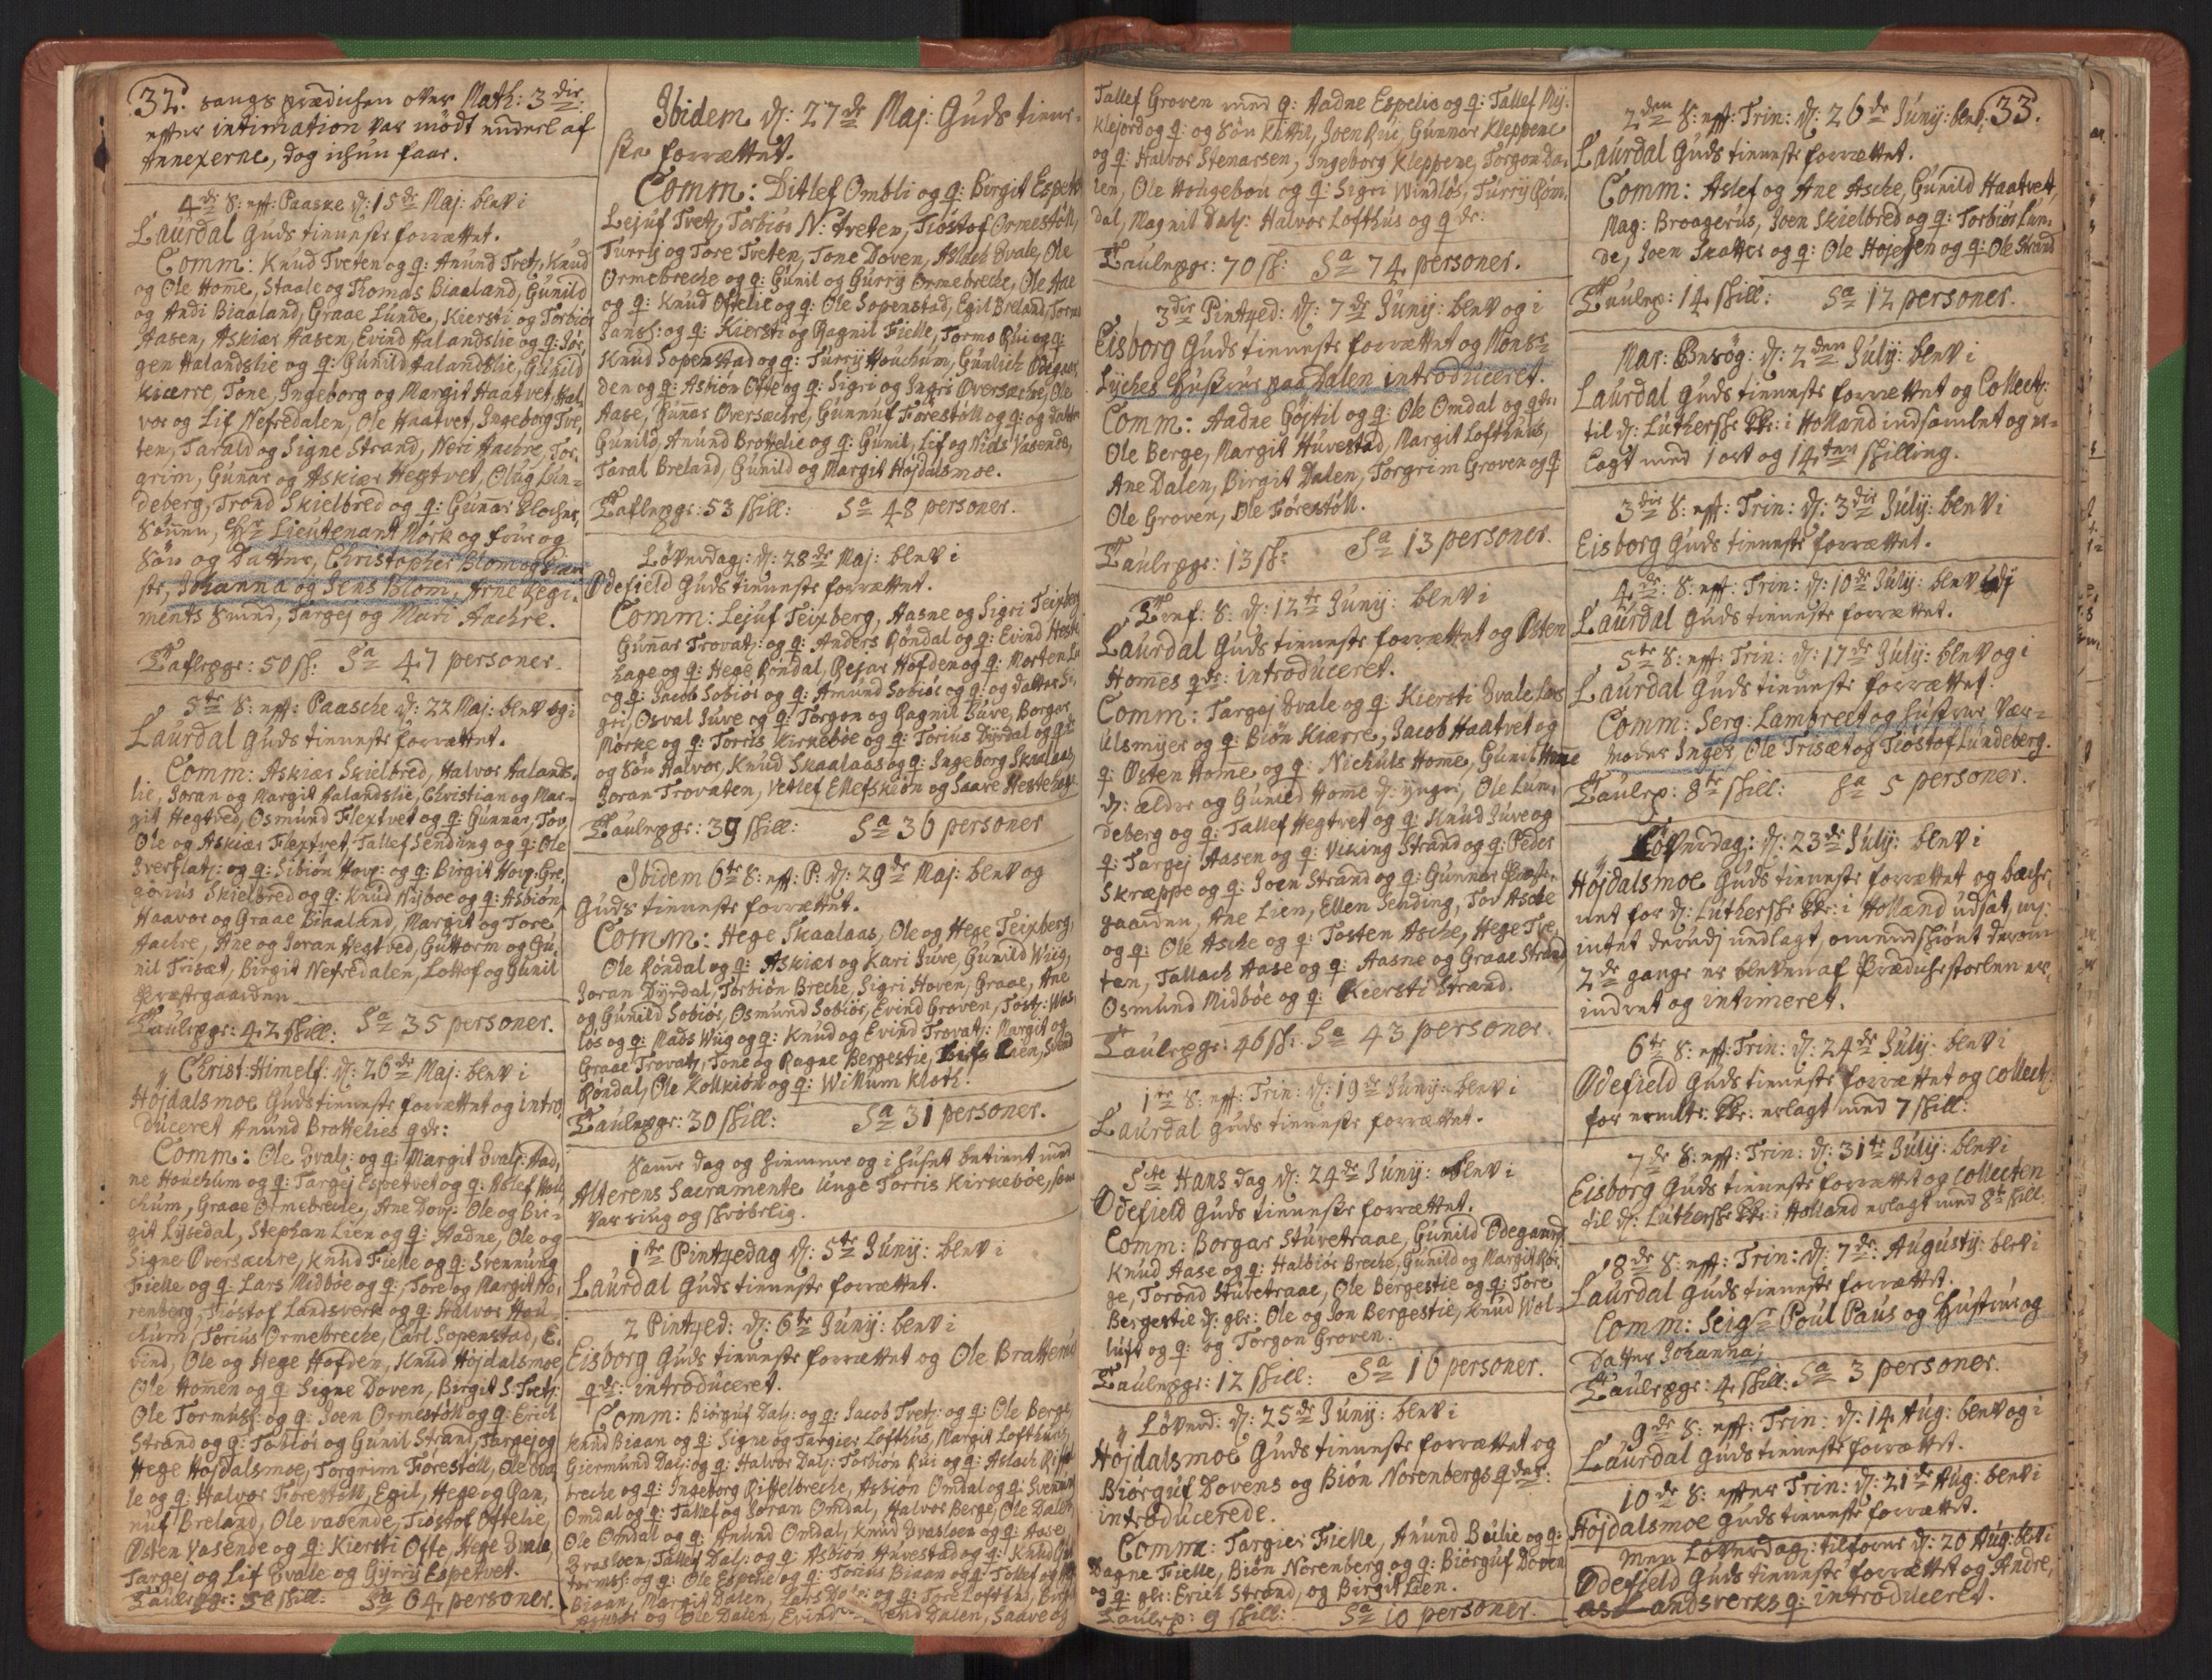 32. sangs prædichen over Math: 3 die
efter intimation var mødt endeel af
Annexerne, dog ichun faae.
4de S: eff: Paaske d: 15de Maj: blev i
Laurdal Guds tienneste forrættet.
Comm: Knud Tveten og q: Anund Tvet: Knud
og Ole Home, Staale og Thomas Biaaland, Gunild
og Andi Biaaland, Graae Lunde, Kiersti og Torbiør
Aasen, Askiær Aasen, Evind Halandslie og q: Jør,
gen Halandslie og q: Gunild Halandslie, Gunild
Kiærre, Tone, Ingeborg og Margit Haatvet, Hal,
vor og Lif Nefredalen, Ole Haatvet, Ingeborg Tve,
ten, Tarald og Signe Strand, Neri Aachre, Tor,
grim, Gunnar og Askiær Hegtvet, Oluf Lun=
deberg, Trond Skielbred og q: Gunnar Klocher,
Sönnen, Hr Lieutenant Mørk og frue og
Sön og Datter, Christopher Blom og Kiære
ste, Johanna og Jens Blom, Arne Regi,
ments Smid, Targej og Mari Aachre.
Taflepge: 50 sh: Sa 47 personer.
5te S: eff: Paasche d: 22 Maj: blev og i
Laurdal Guds tienneste forrættet.
Comm: Askiær Skielbred, Halvor Halands,
lie, Joran og Margit Halandslie, Christian og Mar=
git Hegtved, Osmund Flextvet og q: Gunnar, Tov,
Ole og Askiær Flextvet, Tallef Sending og q: Ole
Sverslatz: og q: Sibiön Hovp: og q: Birgit Hovp: Gre,
gorius Skielbred og q: Knud Nisboe og q: Asbiön,
Haavor og Graae Biaaland, Margit og Tore
Aachre, Ane og Joran Hegtved, Guttorm og Gu,
nil Trisæt, Birgit Nefredalen, Lottof og Gunil
Præstegaarden
Taulepge: 42 skill: Sa 35 personer.
Christ: Himelf: d: 26de Maj: blev i
Højdalsmoe Guds tienneste forrættet og intro,
duceret Anund Brottelies qde:
Comm: Ole Dvalz: og q: Margit Dvalz: Aad,
ne Houchum og q: Targej Espetvet og q: Aslef Hou,
chum, Graae Ormebreche, Ane Dovz: Ole og Bir=
git Lysedal, Stephan Lien og q: Aadne, Ole og
Signe Oversachre, Knud Fielle og q: Svennung
Fielle og q: Lars Midbøe og q: Tore og Margit No,
renberg, Tiöstof Landsverk og q: Halvor Hou=
chum, Torius Ormebreche, Carl Sopenstad, E,
vind, Ole og Hege Hofden, Knud Höjdalsmoe
Ole Homen og q Signe Doven, Birgit S: Tvetz:
Ole Tormusl: og q: Joen Ormestöll og q: Erich
Strand og q: Tobiör og Gunil Strand, Targej og
Hege Højdalsmoe, Torgrim Forestöll, Ole Dva
le og q: Halvor Forestöll, Egil, Hege og Gun,
nuf Breland, Ole vasende, Tiöstof Oftelie,
Østen Vasende og q: Kiersti Ofte, Hege Dvale
Targej og Lif Dvale og Gyrrij Espetvet.
Taulepge: skill: Sa 64 personer.
Ibidem d: 27de Maj: Guds tienne=
ste forrættet.
Comm: Ditlef Ombli og q: Birgit Espet
Lejuf Tvetz, Torbiör N: treten, Tiöstof Ormestöll,
Turrij og Tore Treten, Tone Doven, Aslach Dvale, Ole
Ormebreche og q: Gunil og Gurrij Ormebreche, Ole Aae
og q: Knud Oftelie og q: Ole Sopenstad, Egil Breland, Tormo
Jansl: og q: Kiersti og Ragnil Fielle, Tormo Rui og q:
Knud Sopenstad og q: Turrij Houchum, Gunlich Ødegaar,
den og q: Asbiön Ofte og q: Sigri og Ingri Oversachre, Ole
Aase, Gunnar Oversachre, Gunnuf Forestöll og q: og datter
Gunild, Anund Brottelie og q: Gunil, Lif og Niels Vasende,
Taral Breland, Gunild og Margit Højdalsmoe.
Taflepge: 53 skill: Sa 48 personer.
Løverdag: d: 28de Maj: blev i
Ødefield Guds tienneste forrættet.
Comm: Lejuf Teixberg, Aasne og Sigri Teixberg
Gunnar Trovatz: og q: Anders Røndal og q: Evind Heste
hage og q: Hege Röndal, Rejar Höfden og q: Morten Lu
og q: Jacob Sobiör og q: Amund Sobiör og q: og datter Si,
gri, Osval Juve og q: Torgon og Ragnil Juve, Borgar
Mørke og q: Torris Kirkebøe og q: Torius Dyrdal og qde
og Sön Halvor, Knud Skaalaas og q: Ingeborg Skaalaas,
Joran Trovaten, Vetlef Ellefskiön og Saave Hestehag:
Taulepge: 39 skill: Sa 36 personer
Ibidem 6te S: eff: P: d: 29de Maj: blev og
Guds tienneste forrættet.
Comm: Hege Skaalaas, Ole og Hege Teixberg,
Ole Röndal og q: Askiær og Kari Juve, Gunild Wiig,
Joran Dyrdal, Torbiön Breche, Sigri Hoven, Graae, Ane
og Gunild Sobiör, Osmund Sobiör, Evind Groven, Tostz: Was:
lös og q: Mads Wiig og q: Knud og Evind Trovatz: Margit og
Graae Trovatz, Tone og Ragne Bergestie, Lien, Svend
Röndal, Ole Kolkiön og q: Willum Kloth.
Taulepge: 30 skill: Sa 31 personer.
Same dag og hiemme og i huset betient med
Alterens Sacramente Unge Torris Kirkebøe, som
var siug og skröbelig.
1te Pintzedag d: 5te Junij: blev i
Laurdal Guds tienneste forrættet.
2 Pintzed: d: 6te Junij: blev i
Eisborg Guds tienneste forrættet og Ole Bratteru
qde: introduceret.
Comm: Biörguf Dalz: og q: Jacob Tvetz: og q: Ole Berge,
Knud Biaan og q: Signe og Targier Lofthus, Margit Lofthuus,
Giermund Dalz: og q: Halvor Dalz: Torbiön Rui og q: Aslach Riffel
breche og q: Ingeborg Riffelbreche, Asbiön Omdal og q: Svennung
Omdal og q: Tallef og Joran Omdal, Halvor Berge, Ole Dalen
Ole Omdal og q: Anund Omdal, Knud Dvasloen og q: Aase
Dvasloen, Tallef Dalz: og q: Asbiön Huvestad og q: Knud Gut
tormsl: og q: Ole Espelie og q: Torius Biaan og q: Tollef og
Biaan, Margit Dalen, Lars og q: Tore Lofthus, Birgit
og Ole Dalen, Evind Dalen, Saave og
Tallef Groven med q: Aadne Espelie og q: Tallef Mij,
klejord og q: og Sön Kittil, Joen Rui, Gunnar Kleppene
og q: Halvor Stenarsen, Ingeborg Kleppene, Torgon Da,
len, Ole Hougebou og q: Sigri Windlös, Turrij Röm,
dal, Magnil Dalz: Halvor Lofthus og qde:
Taulepge: 70 sh: Sa 74 personer.
3die Pintzed: d: 7de Junij: blev og i
Eisborg Guds tienneste forrættet og Monsr
Lyches Hustrue paa Dalen introduceret.
Comm: Aadne Göjtil og q: Ole Omdal og qde:
Ole Berge, Margit Huvestad, Margit Lofthuus,
Ane Dalen, Birgit Dalen, Torgrim Groven og q
Ole Groven, Ole Förestöll.
Taulepge: 13 sh: Sa 13 personer.
Tref: S: d: 12te Junij: blev i
Laurdal Guds tienneste forrættet og Østen
Homes qde: introduceret.
Comm: Targej Dvale og q: Kiersti Dvale Lars
Ulsmyer og q: Biön Kiærre, Jacob Haatvet og
q: Østen Home og q: Nichuls Home, Gunil Home
d: ældre og Gunild Home d: yngre, Ole Lun,
deberg og q: Tallef Hegtvet og q: Knud Juve og
q: Targej Aasen og q: Viking Strand og q: Peder
Skræppe og q: Joen Strand og q: Gunnar Præste,
gaarden, Ane Lien, Ellen Sending, Tov Asche
og q: Ole Asche og q: Tosten Asche, Hege Tve,
ten, Tallach Aase og q: Aasne og Graae Strand
Osmund Midbøe og q: Kiersti Strand.
Taulepge: 46 sh: Sa 43 personer.
1te S: eff: Trin: d: 19de Junij: blev i
Laurdal Guds tienneste forrættet.
Scte Hans Dag d: 24de Junij: blev i
Ødefield Guds tienneste forrættet.
Comm: Borgar Stuvetraae, Gunild Ødegaard
Knud Aase og q: Halbiör Breche, Gunild og Margit Bör,
ge, Torond Stuvetraae, Ole Bergestie og q: Tore
Bergestie d: gle: Ole og Jon Bergestie, Knud Wol=
luft og q: og Torgon Groven.
Taulepge: 12 skill: Sa 16 personer.
Løverd: d: 25de Junij: blev i
Højdalsmoe Guds tienneste forrættet og
Biørguf Dovens og Biön Norenbergs qder:
introducerede.
Comm: Targier Fielle, Anund Bölie og q:
Dagne Fielle, Biön Norenberg og q: Biörguf Doven
og q: gle: Erich Strand, og Birgit Lien.
Taulep: 9 skill: Sa 10 personer.
2den S: eff: Trin: d: 26de Junij: blev i 33.
Laurdal Guds tienneste forrættet.
Comm: Aslef og Ane Asche, Gunild Haatvet,
Mag: Broagerus, Joen Skielbred og q: Torbiör Lun,
de, Joen Skatter og q: Ole Hojesen og q: Ole Strand
Taulep: 14 skill: Sa 12 personer.
Mar: Besög: d: 2den Julij: blev i
Laurdal Guds tienneste forrættet og Collect:
til d: Luthersche Kke: i Holland indsamlet og er=
lagt med 1 ort og 14ten skilling.
3die S: eff: Trin: d: 3die Julij: blev i
Eisborg Guds tienneste forrættet.
4de: S: eff: Trin: d: 10de Julij: blev
Laurdal Guds tienneste forrættet.
5te S: eff: Trin: d: 17de Julij: blev og i
Laurdal Guds tienneste forrættet.
Comm: Serg: Lambrecht og hustrue, Vær=
moder Inger, Ole Trisæt og Tiöstof Lundeberg.
Taulep: 8te skill: Sa 5 personer.
Løverdag: d: 23de Julij: blev i
Højdalsmoe Guds tienneste forrættet og bæche,
net for d: Luthersche Kke: i Holland udsat, mj:
intet derudj nedlagt, omendskiönt derom
2de gange er bleven af Prædichestoelen er,
indret og intimeret.
6te S: eff: Trin: d: 24de Julij: blev i
Ødefield Guds tienneste forrættet og collect:
for ermlte: Kke: erlagt med 7 skill:
7de S: eff: Trin: d: 31te Julij: blev i
Eisborg Guds tienneste forrættet og collecten
til d: Luthersche Kke: i Holland erlagt med 8te skill:
8de S: eff: Trin: d: 7de: Augustij: blev i
Laurdal Guds tienneste forrættet.
Comm: Seigr Poul Paus og Hustrue og
Datter Johanna;
Taulepge: 4 skill: Sa 3 personer.
9de S: eff: Trin: d: 14 Aug: blev og i
Laurdal Guds tienneste forrættet.
10de S: efter Trin: d: 21de Aug: blev i
Højdalsmoe Guds tienneste forrættet.
Men Løverdag: tilforne d: 20 Aug: blev i
Ødefield Guds tienneste forrættet og Andre,
Landsverks q: introduceret.